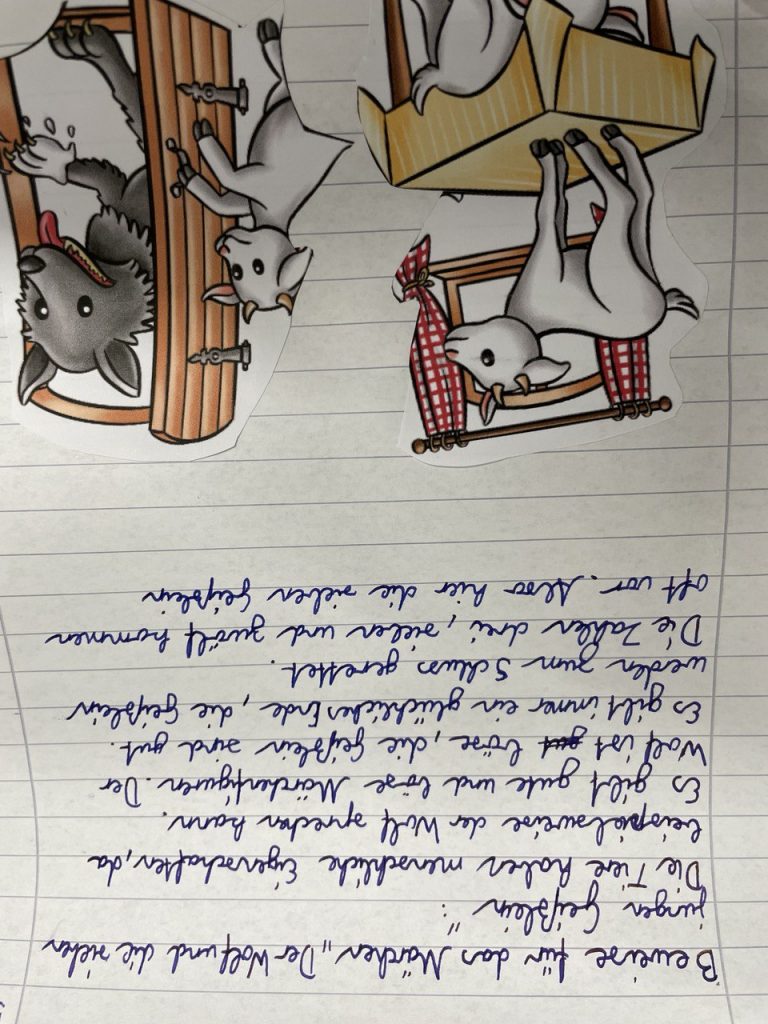 Beweise für das Märchen „Der Wolf und die sieben
jungen Geißlein":
Die Tiere haben menschliche Eigenschaften, da
beispielsweise der Wolf sprechen kann.
Es gibt gute und böse Märchenfiguren. Der
Wolf ist gut böse, die Geißlein sind gut.
Es gibt immer ein glückliches Ende, die Geißlein
werden zum Schluss gerettet.
Die Zahlen drei, sieben und zwölf kommen
oft vor. Also hier die sieben Geißlein